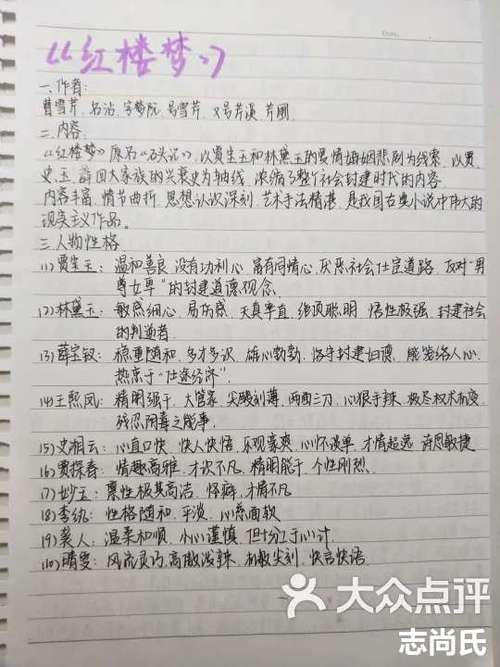 《红楼梦》
一、作者:
曹雪芹 名沾 字梦阮 号雪芹 又号芹溪 芹圃
二、内容:
《红楼梦》原名《石头记》,以贾宝玉和林黛玉的爱情婚姻悲剧为线索,以贾、
史、王、薛四大家族的兴衰史为轴线,浓缩了整个社会封建时代的内容.
内容丰富 情节曲折 思想认识深刻 艺术手法精湛 是我国古典小说中伟大的
现实主义作品。
三、人物性格
(1)贾宝玉:温和善良 没有功利心 富有同情心 厌恶社会仕宦道路 反对“男
尊女卑”的封建道德观念.
(2)林黛玉:敏感细心 易伤感 天真率直 绝顶聪明 悟性极强 封建社会
的判逆者
(3)薛宝钗:稳重随和 多才多识 雄心勃勃 恪守封建妇德 能笼络人心
热衷于“仕途经济”.
(4)王熙凤:精明强干 大管家 尖酸刻薄 两面三刀 心狠手辣 极尽权术机变
残忍阴毒之能事
(5)史湘云:心直口快 快人快语 乐观豪爽 心怀淡单 才情超逸 诗思敏捷
(6)贾探春:情趣高雅 才次不凡 精明能干 个性刚烈.
(7)妙玉:禀性极其高洁 怪癖 才情不凡
(8)李纨:性格随和 平淡 心慈面软
(9)袭人:温柔和顺 小心谨慎 但十分工于心计
(10)晴雯:风流灵巧 高傲泼辣 机敏尖刻 快言快语
大众点评
志尚氏